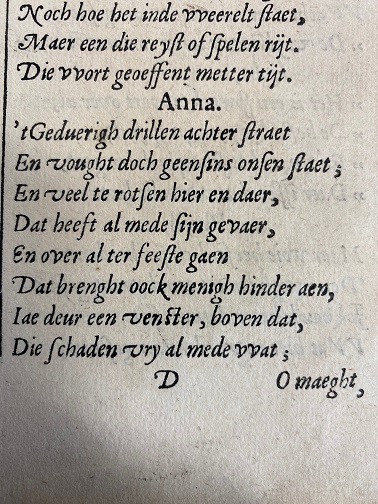 Noch hoe het inde vveerelt ſtaet,
Maer een die reyſt of ſpelen rijt.
Die vvort geoeffent metter tijt.
Anna.
'tGeduerigh drillen achter ſtraet
En vought doch geenſins onſen ſtaet;
En veel te rotſen hier en daer,
Dat heeft al mede ſijn gevaer,
En over al ter feeſte gaen
Dat brenght oock menigh hinder aen,
Iae deur een venſter, boven dat,
Die ſchaden vry al mede vvat;
D O maeght,